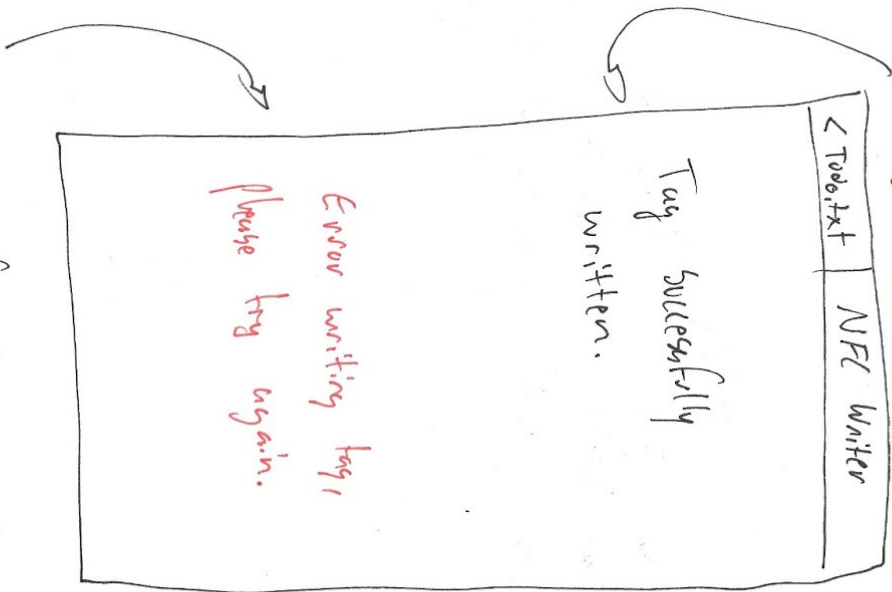 < Todo.txt | NFC Writer
Tag successfully
written.
Error writing tag,
please try again.